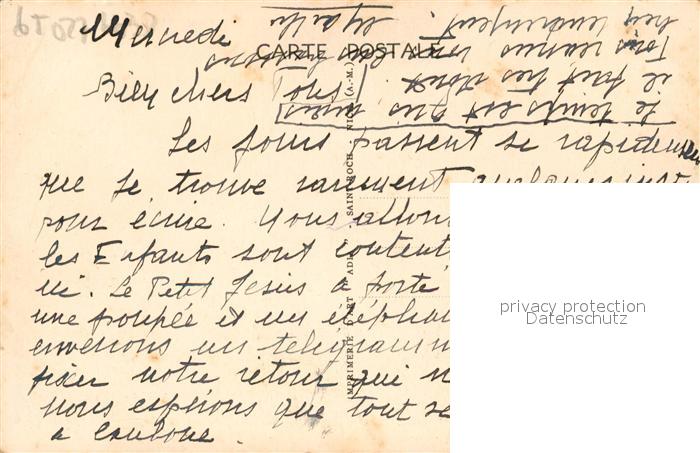 Mercredi
CARTE POSTALE
Bien chers Tous
Les jours passent si rapidement
que je trouve rarement quelques
pour écrire. Nous allon
les Enfants sont content
ici. Le Petit Jésus a porté
une poupée et un éléphan
enverrons un télégramm
fixer notre retour qui n
nous espérons que tout se
a
Le temps est gris, mais
il fait très doux.
Tous réunis
très tendrement.
Marthe
IMPRIMERIE D'ART ADIA SAINT-ROCH NICE (A.-M.)
privacy protection
Datenschutz